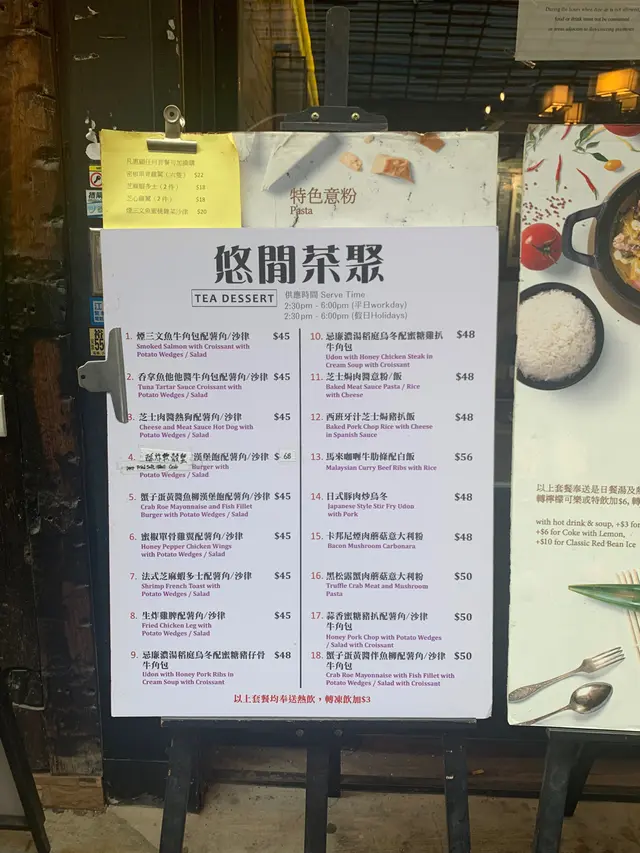 During the hours when dine-in is not allowed,
food or drink must not be consumed
特色意粉
Pasta
$22
$18
$18
$20
悠閒茶聚
TEA DESSERT
供應時間 Serve Time
2:30pm - 6:00pm (平日workday)
2:30pm - 6:00pm (假日Holidays)
1. 煙三文魚牛角包配薯角/沙律 $45
Smoked Salmon with Croissant with
Potato Wedges / Salad
2. 吞拿魚他他醬牛角包配薯角/沙律 $45
Tuna Tartar Sauce Croissant with
Potato Wedges / Salad
3. 芝士肉醬熱狗配薯角/沙律 $45
Cheese and Meat Sauce Hot Dog with
Potato Wedges / Salad
4. 漢堡飽配薯角/沙律 $ 68
Burger with
Potato Wedges / Salad
5. 蟹子蛋黃醬魚柳漢堡飽配薯角/沙律 $45
Crab Roe Mayonnaise and Fish Fillet
Burger with Potato Wedges / Salad
6. 蜜椒單骨雞翼配薯角/沙律 $45
Honey Pepper Chicken Wings
with Potato Wedges / Salad
7. 法式芝麻蝦多士配薯角/沙律 $45
Shrimp French Toast with
Potato Wedges / Salad
8. 生炸雞髀配薯角/沙律 $45
Fried Chicken Leg with
Potato Wedges / Salad
9. 忌廉濃湯稻庭烏冬配蜜糖豬仔骨 $48
牛角包
Udon with Honey Pork Ribs in
Cream Soup with Croissant
10. 忌廉濃湯稻庭烏冬配蜜糖雞扒 $48
牛角包
Udon with Honey Chicken Steak in
Cream Soup with Croissant
11. 芝士焗肉醬意粉/飯 $48
Baked Meat Sauce Pasta / Rice
with Cheese
12. 西班牙汁芝士焗豬扒飯 $48
Baked Pork Chop Rice with Cheese
in Spanish Sauce
13. 馬來咖喱牛肋條配白飯 $56
Malaysian Curry Beef Ribs with Rice
14. 日式豚肉炒烏冬 $48
Japanese Style Stir Fry Udon
with Pork
15. 卡邦尼煙肉蘑菇意大利粉 $48
Bacon Mushroom Carbonara
16. 黑松露蟹肉蘑菇意大利粉 $50
Truffle Crab Meat and Mushroom
Pasta
17. 蒜香蜜糖豬扒配薯角/沙律 $50
牛角包
Honey Pork Chop with Potato Wedges
/ Salad with Croissant
18. 蟹子蛋黃醬伴魚柳配薯角/沙律 $50
牛角包
Crab Roe Mayonnaise with Fish Fillet with
Potato Wedges / Salad with Croissant
以上套餐均奉送熱飲，轉凍飲加$3
以上套餐奉送是日餐湯及熱
轉檸檬可樂或特飲加$6, 轉
with hot drink & soup, +$3 for
+$6 for Coke with Lemon,
+$10 for Classic Red Bean Ice